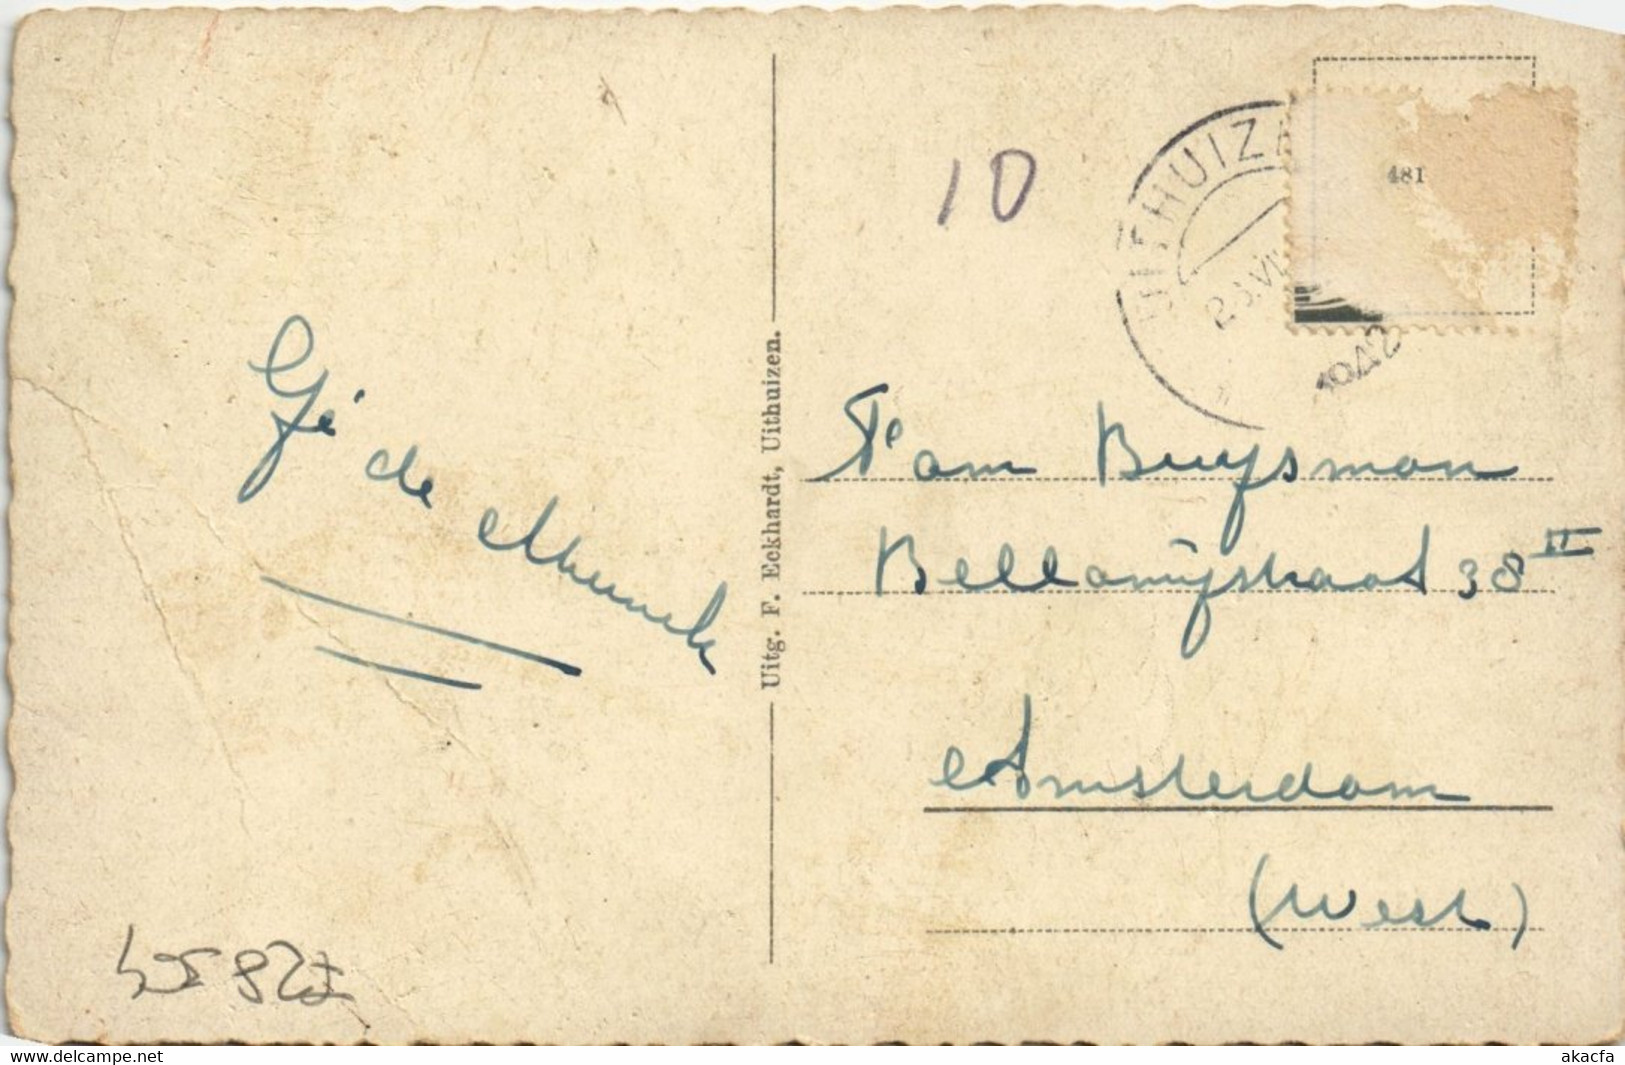 Gé de Munck
Uitg. F. Eckhardt, Uithuizen.
10
UITHUIZE
28.VI
1942
481
Fam Buysman
Bellamystraat 38 II
Amsterdam
(West)
www.delcampe.net
akacfa